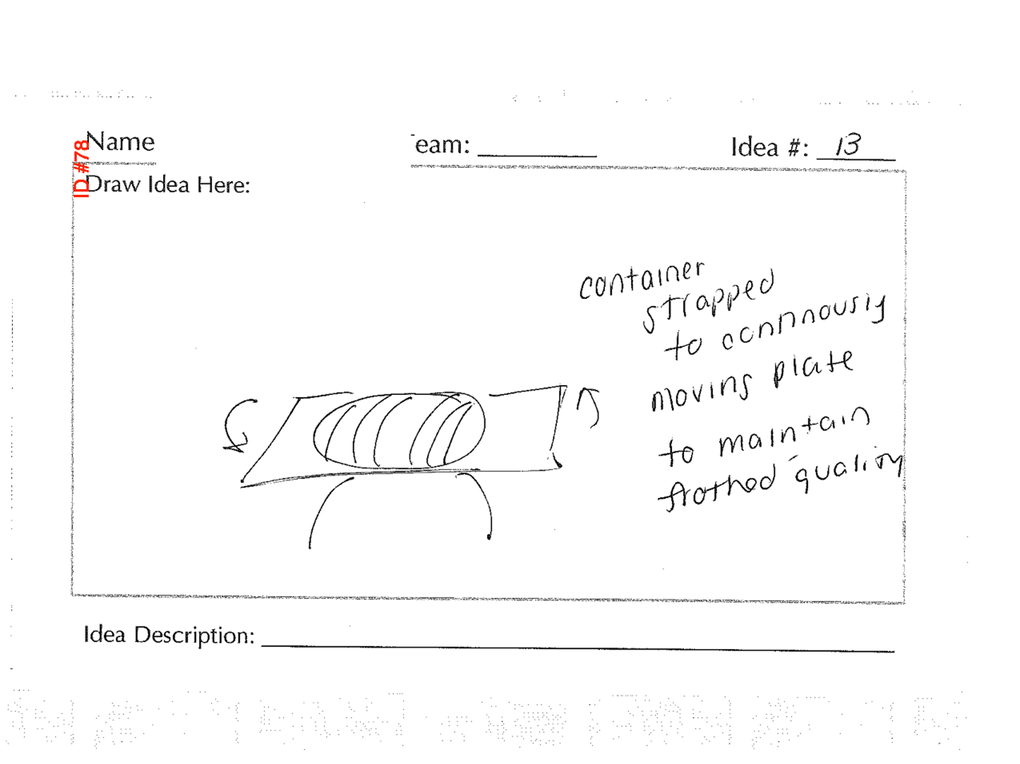 ID #78
Name eam: Idea #: 13
Draw Idea Here:
container
strapped
to continously
moving plate
to maintain
frothed quality
Idea Description: